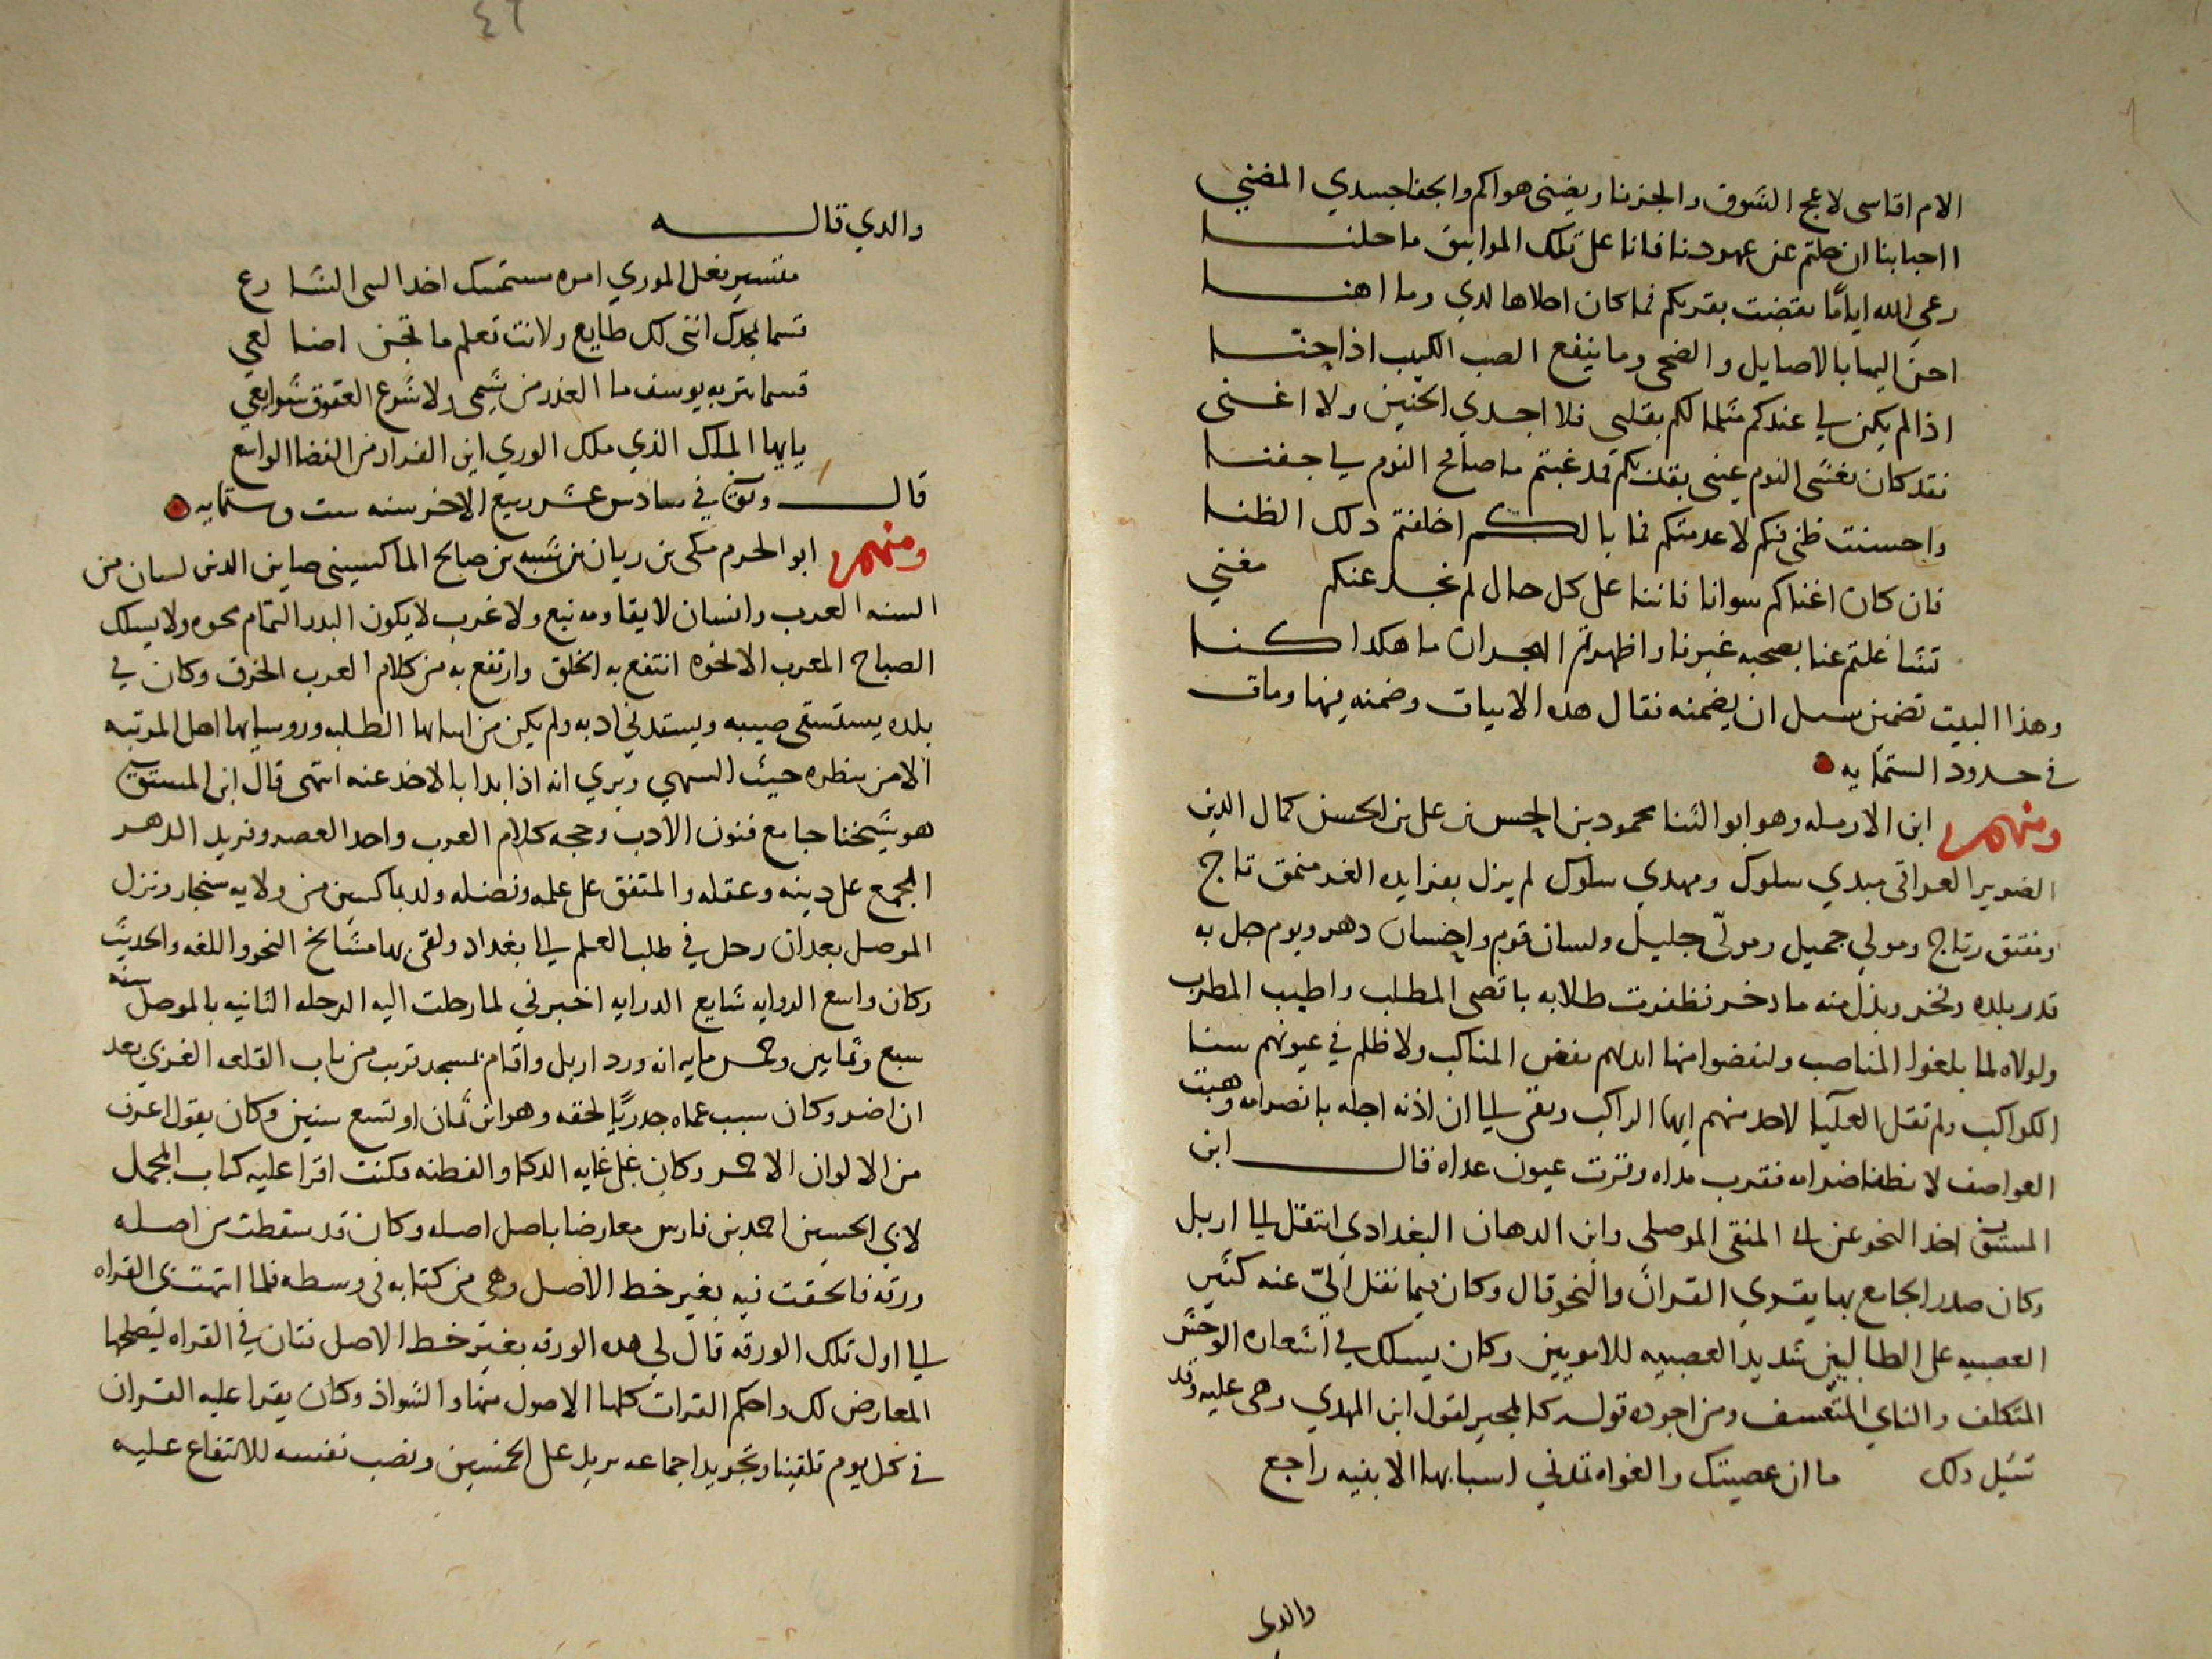 الام اقاسى لاعج الشوق والحزنا ويضنى هواكم والجفا جسدي المضني
ااحبابنا ان حلتم عن عهودنا فانا على تلك المواثيق ما حلنا
رعى الله اياما تقضت بقربكم فما كان احلاها لدي وما اهنا
احن اليها بالاصايل والضحى وما ينفع الصب الكييب اذا حنا
اذا لم يكن لي عندكم مثلما لكم بقلبي فلا اجدي الحنين ولا اغنى
فقد كان يغشى النوم عينى بقربكم فمذ غبتم ما صافح النوم لي جفنا
واحسنت ظنى فيكم لا عدمتكم فما بالكم اخلفتم دلك الظنا
فان كان اغناكم سوانا فاننا على كل حال لم نجد عنكم مغني
تشاغلتم عنا بصحبه غيرنا واظهرتم الهجران ما هكدا كنا
وهذا البيت تضمين سيل ان يضمنه فقال هده الابيات وضمنه فيها ومات
في حدود الستمايه
ومنهم ابن الارمله وهو ابو الثنا محمود بن الحسن بن على بن الحسن كمال الدين
الضرير العراقى مبدي سلوك ومهدي سلوك لم يزل بفرايده الغر منمق تاج
ومفتق رتاج ومولي جميل ومولى جليل ولسان قوم وانسان دهر ويوم حل به
قدر بلده وفخر وبذل منه ما دخر فظفرت طلابه باقصى المطلب واطيب المطرب
ولولاه لما بلغوا المناصب ولنفضوا منها ايديهم نفض المناكب ولا ظلم في عيونهم سنا
الكواكب ولم تقل العليا لاحد منهم ايها الراكب وبقى الي ان اذنه اجله بانصرامه وهبت
العواصف لا نطفا ضرامه فقرب مداه وقرت عيون عداه قال ابن
المستوفى اخذ النحو عن المنقى الموصلى وابن الدهان البغدادي انتقل الي اربل
وكان صدر الجامع بها يقري القران والنحو قال وكان فيما نقل الي عنه كثير
العصبيه على الطالبيين شديد العصبيه للامويين وكان يسلك في اشعاره الوحشي
المتكلف والناي المتعسف ومن اجوده قوله لقول ابن المهدي وهى عليه وقد
تثيل دلك ما ان عصيتك والغواه تمدني اسبابها الا بنيه راجع
والدى
٤٦
والدي قاله
متسير فعل الموري امره مستمسك اخدا الشارع
قسما بمجدك اننى لك طايع ولانت تعلم ما تجن اضالعي
قسما بتربه يوسف ما الغدر من شيمى ولا شرع العقوق شرايعي
يايها الملك الذي ملك الوري اين الفرار من الفضا الواسع
قال وتوفى في سادس عشر ربيع الاخر سنه ست وستمايه
ومنهم ابو الحرم مكى بن ريان بن شبه بن صالح الماكسينى صاين الدين لسان من
السنه العرب وانسان لا يقاومه نبع ولا غرب لا يكون البدر التمام نحوه ولا يسلك
الصباح المعرب الا نحوه انتفع به الخلق وارتفع به من كلام العرب الخرق وكان في
بلده يستسقى صيبه ويستمد ادبه ولم يكن من ابنايها الطلبه وروسايها اهل المرتبه
الا من ينظره حيث السهي ويري انه اذا بدا بالاخذ عنه انتهى قال ابن المستوفى
هو شيخنا جامع فنون الادب وحجه كلام العرب واحد العصر وفريد الدهر
المجمع على دينه وعقله والمتفق على علمه وفضله ولد بماكسين من ولايه سنجار ونزل
الموصل بعد ان رحل في طلب العلم الي بغداد ولقى بها مشايخ النحو واللغه والحديث
وكان واسع الروايه شايع الدرايه اخبرني لما رحلت اليه الرحله الثانيه بالموصل سنه
سبع وثمانين وخمس مايه انه ورد اربل واقام بمسجد قريب من باب القلعه الغربي بعد
ان اضر وكان سبب عماه جدريا لحقه وهو ابن ثمان او تسع سنين وكان يقول اعرف
من الالوان الاحمر وكان على غايه الدكا والفطنه وكنت اقرا عليه كتاب المجمل
لابي الحسين احمد بن فارس معارضا باصل اصله وكان قد سقطت من اصله
ورقه فالحقت فيه بغير خط الاصل وهى من كتابه فى وسطه فلما انتهت بى القراه
الي اول تلك الورقه قال لي هده الورقه بغير خط الاصل فتان في القراه ليصلحها
المعارض لك واحكم القرات كلها الاصول منها والشواذ وكان يقرا عليه القران
في كل يوم تلقينا وتجويدا جماعه يزيد على الخمسين ونصب نفسه للانتفاع عليه